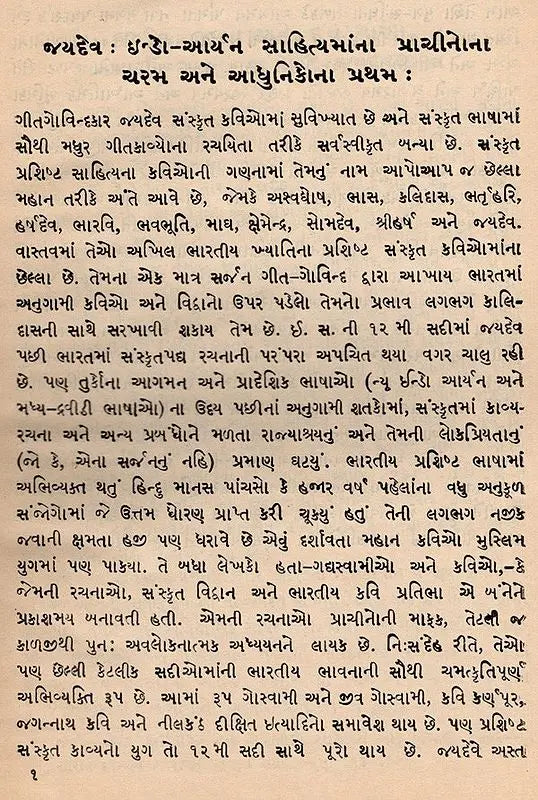 જયદેવ : ઇન્ડો-આર્યન સાહિત્યમાંના પ્રાચીનોના
ચરમ અને આધુનિકોના પ્રથમ :
ગીતગોવિન્દકાર જયદેવ સંસ્કૃત કવિઓમાં સુવિખ્યાત છે અને સંસ્કૃત ભાષામાં
સૌથી મધુર ગીતકાવ્યોના રચયિતા તરીકે સર્વસ્વીકૃત બન્યા છે. સંસ્કૃત
પ્રશિષ્ટ સાહિત્યના કવિઓની ગણનામાં તેમનું નામ આપોઆપ જ છેલ્લા
મહાન તરીકે અંતે આવે છે, જેમકે અશ્વઘોષ, ભાસ, કલિદાસ, ભર્તૃહરિ,
હર્ષદેવ, ભારવિ, ભવભૂતિ, માઘ, ક્ષેમેન્દ્ર, સોમદેવ, શ્રીહર્ષ અને જયદેવ.
વાસ્તવમાં તેઓ અખિલ ભારતીય ખ્યાતિના પ્રશિષ્ટ સંસ્કૃત કવિઓમાંના
છેલ્લા છે. તેમના એક માત્ર સર્જન ગીત-ગોવિન્દ દ્વારા આખાય ભારતમાં
અનુગામી કવિઓ અને વિદ્વાનો ઉપર પડેલો તેમનો પ્રભાવ લગભગ કાલિ-
દાસની સાથે સરખાવી શકાય તેમ છે. ઈ. સ. ની ૧૨ મી સદીમાં જયદેવ
પછી ભારતમાં સંસ્કૃતપદ્ય રચનાની પરંપરા અપચિત થયા વગર ચાલુ રહી
છે. પણ તુર્કોના આગમન અને પ્રાદેશિક ભાષાઓ (ન્યૂ ઈન્ડો આર્યન અને
મધ્ય-દ્રવીડી ભાષાઓ) ના ઉદય પછીનાં અનુગામી શતકોમાં, સંસ્કૃતમાં કાવ્ય-
રચના અને અન્ય પ્રબંધોને મળતા રાજ્યાશ્રયનું અને તેમની લોકપ્રિયતાનું
(જો કે, એના સર્જનનું નહિ) પ્રમાણ ઘટયું. ભારતીય પ્રશિષ્ટ ભાષામાં
અભિવ્યક્ત થતું હિન્દુ માનસ પાંચસો કે હજાર વર્ષ પહેલાંના વધુ અનુકૂળ
સંજોગોમાં જે ઉત્તમ ધોરણ પ્રાપ્ત કરી ચૂકયું હતું તેની લગભગ નજીક
જવાની ક્ષમતા હજી પણ ધરાવે છે એવું દર્શાવતા મહાન કવિઓ મુસ્લિમ
યુગમાં પણ પાકયા. તે બધા લેખકો હતા-ગદ્યસ્વામીઓ અને કવિઓ,-કે
જેમની રચનાઓ, સંસ્કૃત વિદ્વાન અને ભારતીય કવિ પ્રતિભા એ બંનેને
પ્રકાશમય બનાવતી હતી. એમની રચનાઓ પ્રાચીનોની માફક, તેટલી જ
કાળજીથી પુનઃ અવલોકનાત્મક અધ્યયનને લાયક છે. નિઃસંદેહ રીતે, તેઓ
પણ છેલ્લી કેટલીક સદીઓમાંની ભારતીય ભાવનાની સૌથી ચમત્કૃતિપૂર્ણ
અભિવ્યક્તિ રૂપ છે. આમાં રૂપ ગોસ્વામી અને જીવ ગોસ્વામી, કવિ કર્ણપૂર,
જગન્નાથ કવિ અને નીલકંઠ દીક્ષિત ઇત્યાદિનો સમાવેશ થાય છે. પણ પ્રશિષ્ટ
સંસ્કૃત કાવ્યનો યુગ તો ૧૨ મી સદી સાથે પૂરો થાય છે. જયદેવે અસ્ત
૧